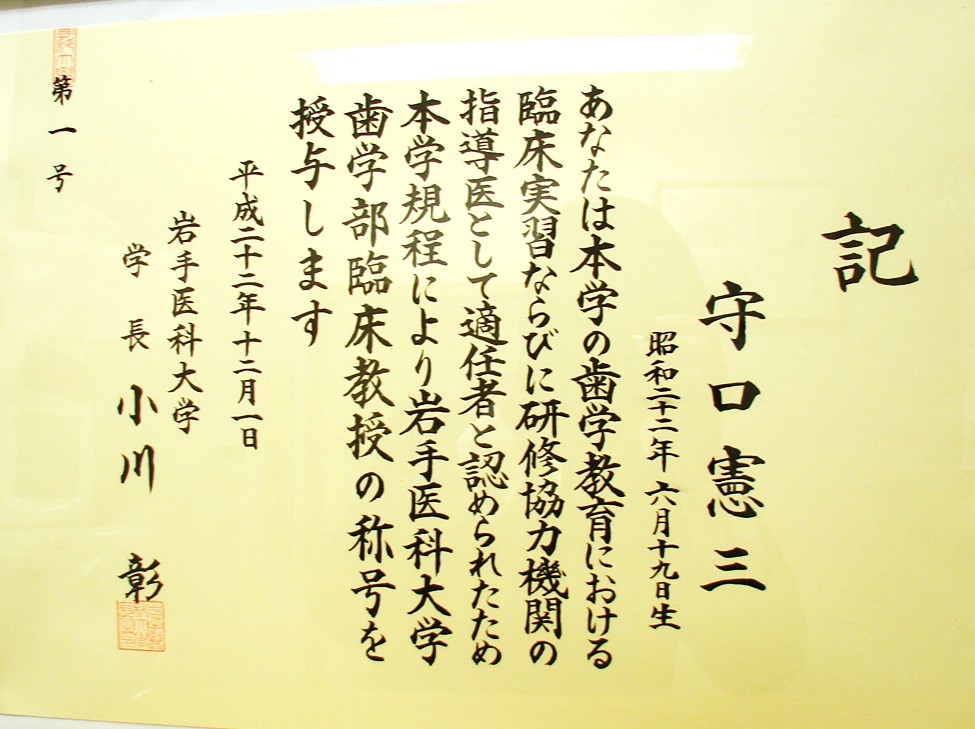 記
守口憲三
昭和二十二年六月十九日生
あなたは本学の歯学教育における
臨床実習ならびに研修協力機関の
指導医として適任者と認められたため
本学規程により岩手医科大学
歯学部臨床教授の称号を
授与します
平成二十二年十二月一日
岩手医科大学
学長 小川 彰
第一号